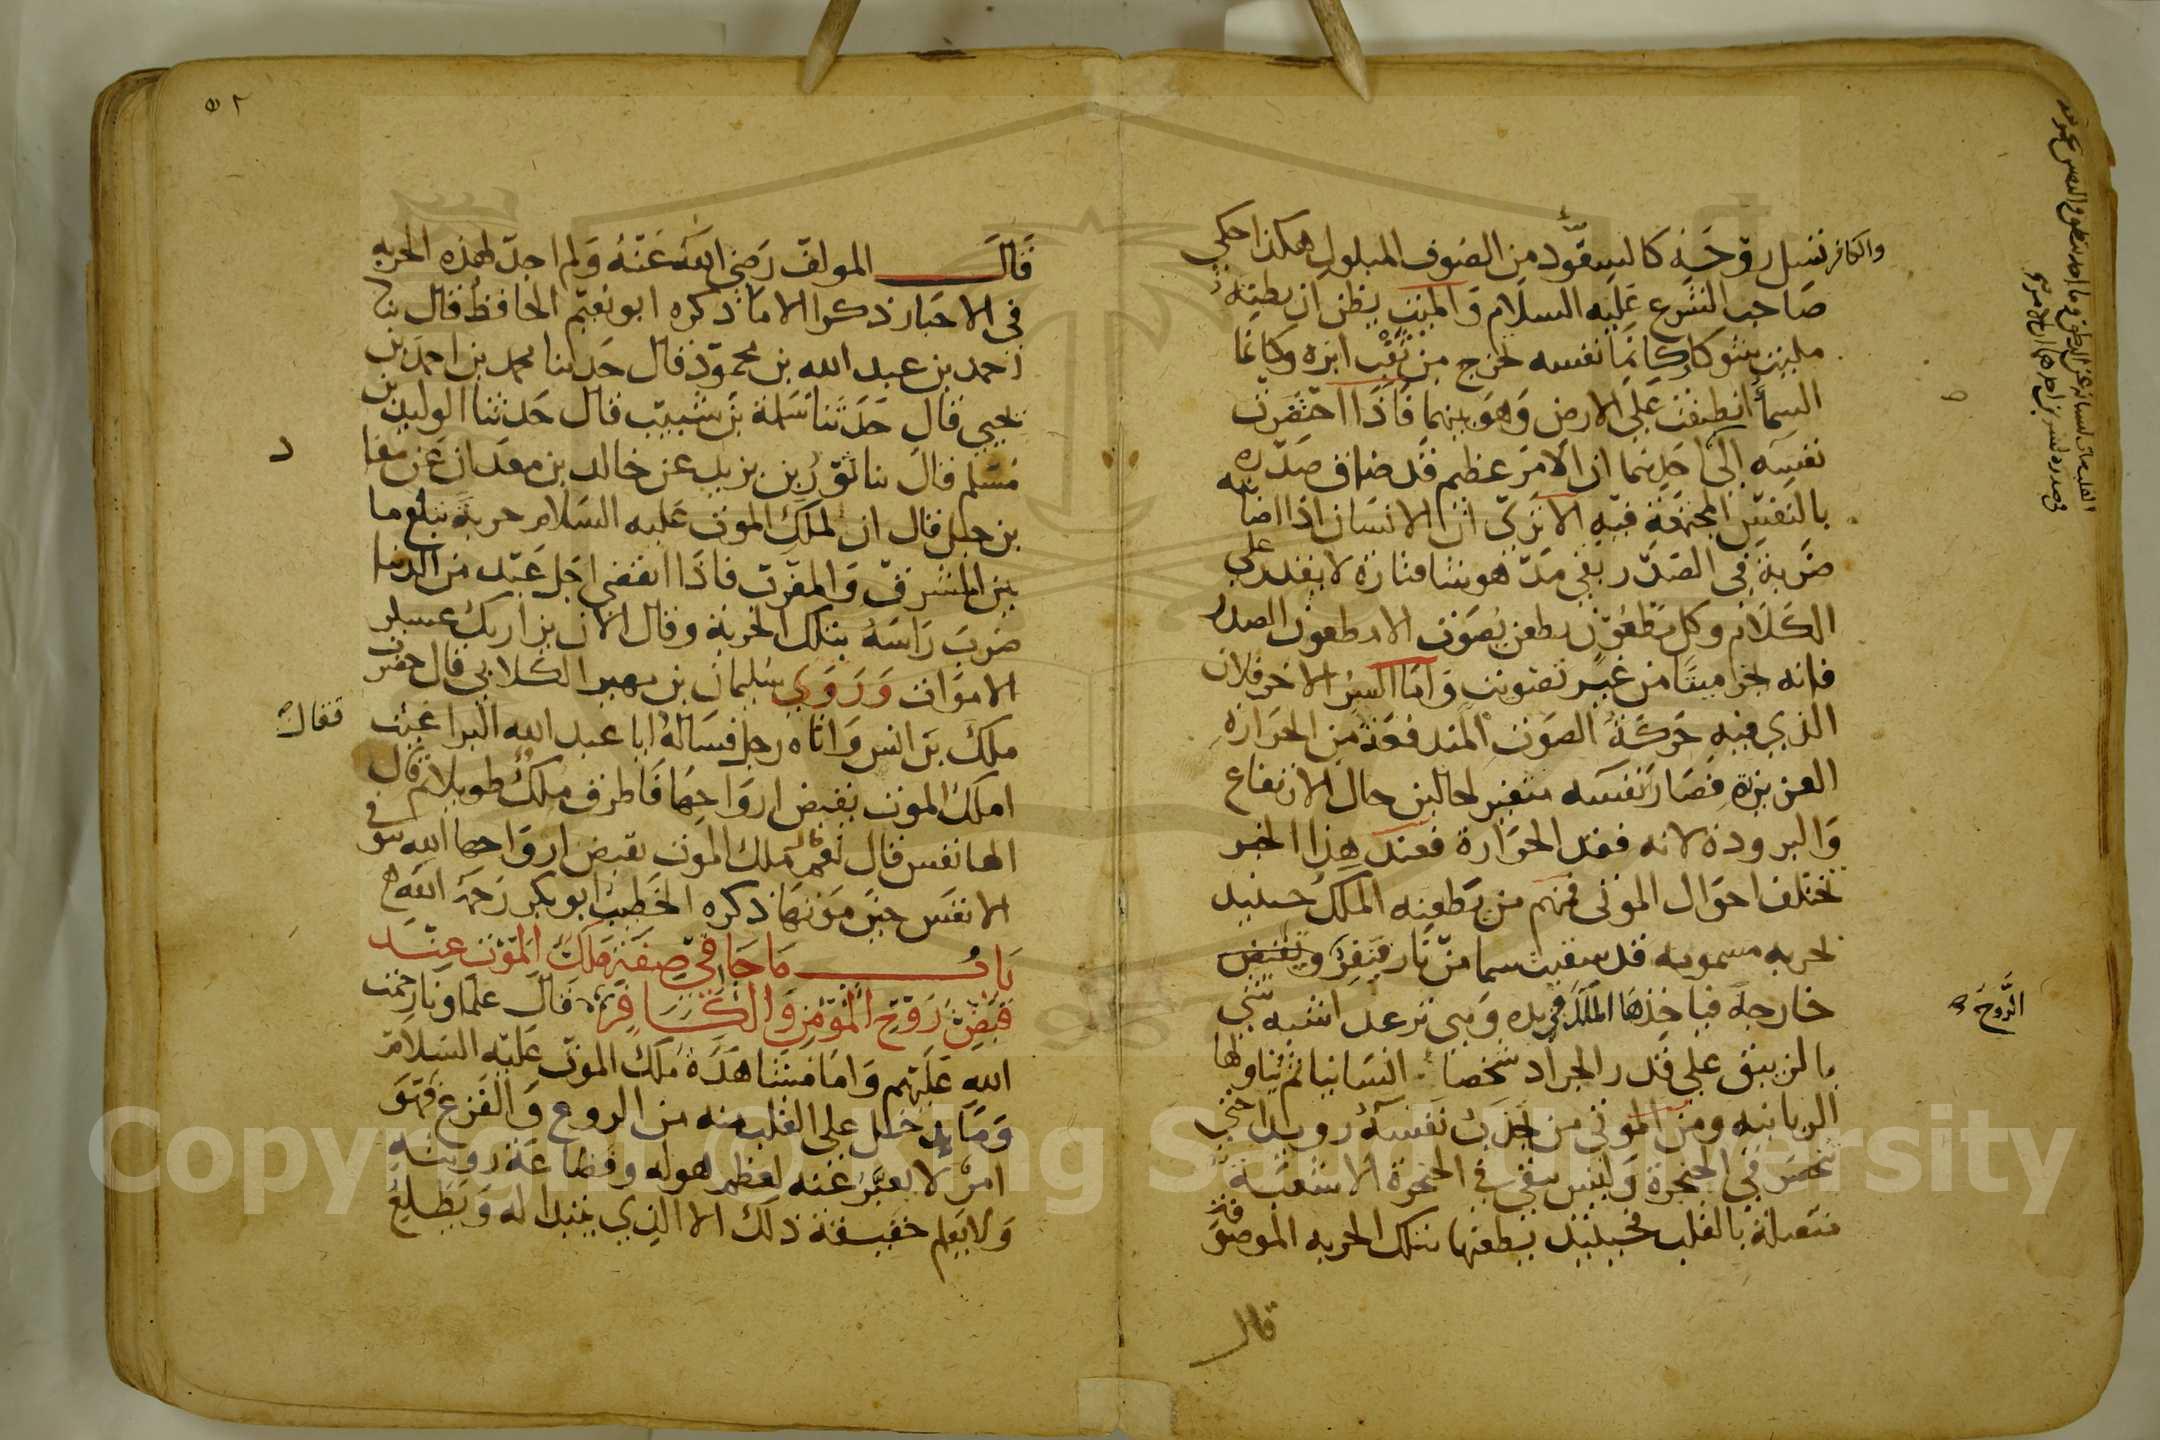 والكافر تنسل روحه كالسفود من الصوف المبلول هكذا حكي
صاحب الشرع عليه السلام والميت يظن ان بطنه
مليت شوكا كانما نفسه تخرج من ثقب ابره وكانما
السما انطبقت على الارض وهو بينهما فاذا احتضرت
نفسه الى
الامر عظم قد ضاق صدره
بالنفس المجتمعة فيه الا ترى ان الانسان اذا اصابته
ضربة في الصدر بقي مدهوشا فتارة لا يقدر على
الكلام وكل مطعون يطعن يصوت الا مطعون الصدر
فانه يخر ميتا من غير تصويت واما السر الاخر فلان
الذي فيه حركة الصوت المندفعة من الحرارة
الغريزة فصار نفسه متغير لحالين حال الارتفاع
والبرودة لانه فقد الحرارة فعند هذا الخبر
تختلف احوال الموتى فمنهم من يطعنه الملك حينيذ
بحربه مسمومه قد سقيت سما من نار فتفر وتقبض
خارجة فياخذها الملك في يده وهي ترعد اشبه شي
بالزيبق على قدر الجراد شخصا انسانيا ثم يناولها
الزبانيه ومن الموتى من تجذب نفسه رويدا حتى
تنحصر في الحنجرة وليس يبقى في الحنجرة الا شعبة
متصلة بالقلب فحينيذ يطعنها بتلك الحربه الموصوفة
قال
الروح
قال المولف رضي الله عنه ولم اجد لهذه الحربه
في الاخبار ذكرا الا ما ذكره ابو نعيم الحافظ قال ثنا
احمد بن عبد الله بن محمود قال حدثنا محمد بن احمد بن
يحيى قال حدثنا سلمة بن شبيب قال حدثنا الوليد بن
مسلم قال ثنا ثور بن يزيد عن خالد بن معدان عن معا
د
بن جبل قال ان لملك الموت عليه السلام حربة تبلغ ما
بين المشرق والمغرب فاذا انقضى اجل عبد من الدنيا
ضرب راسه بتلك الحربة وقال الان يزار بك عسكر
الاموات وروي سليمان بن مهير الكلابي قال حضرت
ملك بن انس واتاه رجل فساله ابا عبد الله البراغيث
املك الموت يقبض ارواحها فاطرق ملك طويلا ثم قال
الها نفس قال نعم قال ملك الموت يقبض ارواحها الله يتوفى
الانفس حين موتها ذكره الخطيب ابو بكر رحمه الله
فقال
باب ما جا في صفة ملك الموت عند
قبض روح المومن والكافر قال علماونا رحمت
الله عليهم واما مشاهدة ملك الموت عليه السلام
وما يدخل على القلب منه من الروع والفزع فهو
امر لا يعبر عنه لعظم هوله وفضاعة رويته
ولا يعلم حقيقة ذلك الا الذي يتبدا له ويطلع
٥٢
Copyright © King Saud University